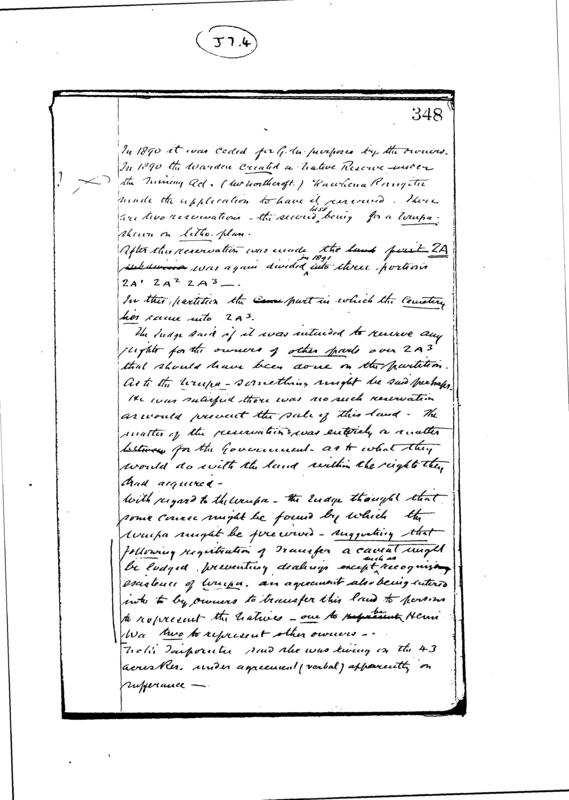 J 7.4
348
In 1890 it was ceded for G.M. purposes by the owners.
In 1890 the Warden created a Native Reserve under
? X the Mining Act. (Mr Northcroft.)
made the application to have it reserved. There
are two reservations - the second being for a Urupa;
shewn on litho. plan.
After this reservation was made the land first 2A
subdivision was again divided in 1891 into three portions
2A¹ 2A² 2A³ —.
In this partition the part in which the Cemetery
lies came into 2A³.
The Judge said if it was intended to reserve any
rights for the owners of other parts over 2A³
that should have been done on the partition.
As to the Urupa - something might be said perhaps.
He was satisfied there was no such reservation
as would prevent the sale of this land - The
matter of the reservations was entirely a matter
between for the Government - as to what they
would do with the land within the rights they
had acquired -
With regard to the Urupa - the Judge thought that
some course might be found by which the
Urupa might be preserved - suggesting that
following registration of Transfer a caveat might
be lodged preventing dealings except such as recognising
existence of Urupa. an agreement also being entered
into to by owners to transfer this land to persons
to represent the Natives - one to represent be Heni
Wa two to represent other owners -.
said she was living on the 43
acres Res. under agreement (verbal) apparently on
sufferance —